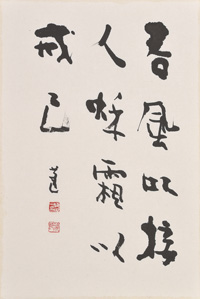 春風以接
人秋霜以
戒己